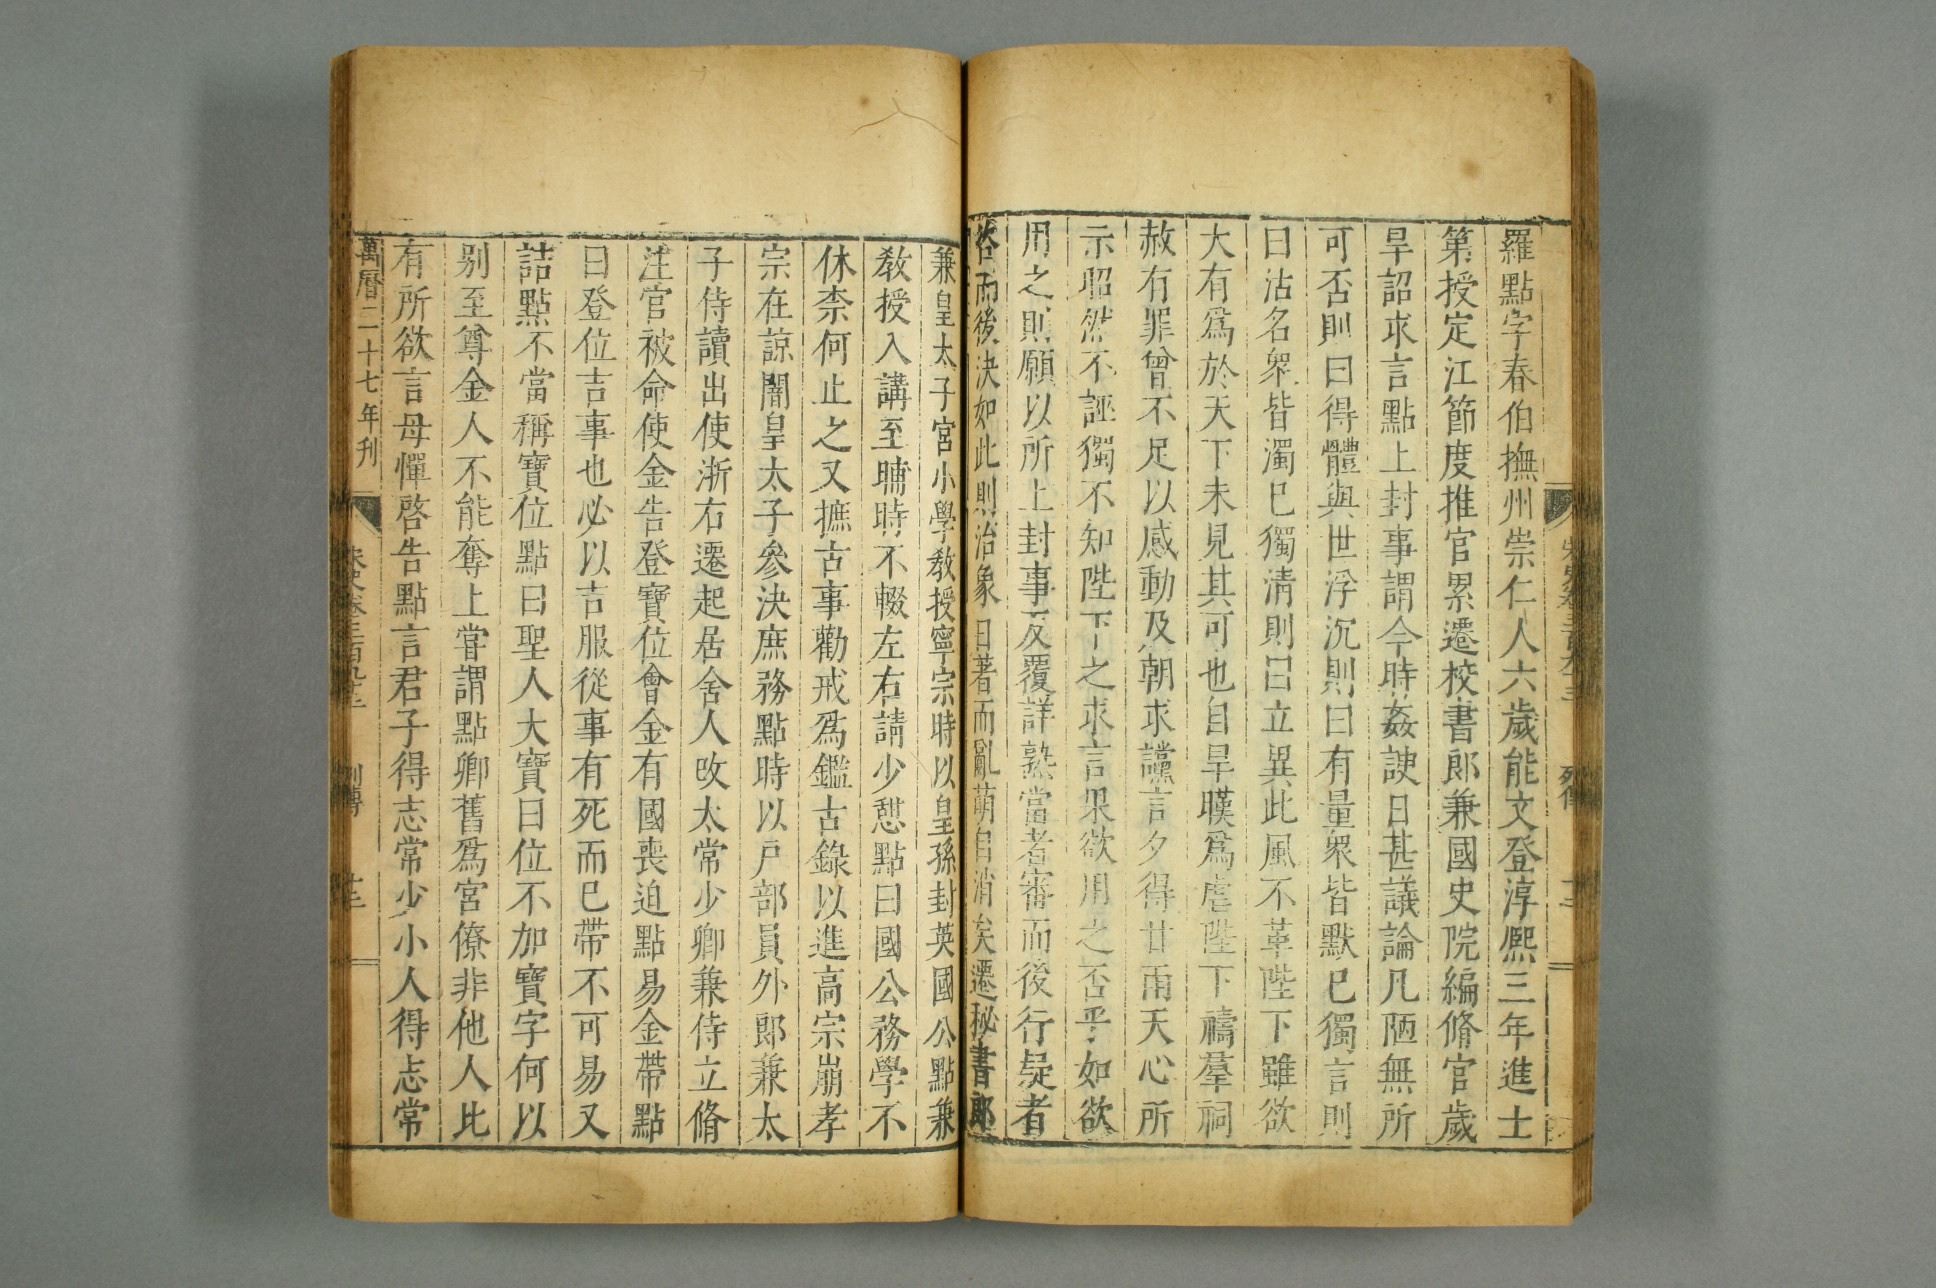 羅點字春伯撫州崇仁人六歲能文登淳熈三年進士
第授定江節度推官累遷校書郎兼國史院編脩官歲
旱詔求言點上封事謂今時姦諛日甚議論凡陋無所
可否則曰得體與世浮沉則曰有量衆皆默已獨言則
曰沽名衆皆濁已獨淸則曰立異此風不革陛下雖欲
大有爲於天下未見其可也自旱暵爲虐陛下禱羣祠
赦有罪曾不足以感動及朝求讜言夕得甘雨天心所
示昭然不誣獨不知陛下之求言果欲用之否乎如欲
用之則願以所上封事反覆詳熟當者審而後行疑者
咨而後決如此則治象日著而亂萌自消矣遷秘書郎
兼皇太子宮小學敎授寧宗時以皇孫封英國公點兼
敎授入講至晡時不輟左右請少憇點曰國公務學不
休柰何止之又摭古事勸戒爲鑑古錄以進高宗崩孝
宗在諒闇皇太子參決庶務點時以戸部員外郎兼太
子侍讀出使浙右遷起居舍人改太常少卿兼侍立脩
注官被命使金告登寶位會金有國喪迫點易金帶點
曰登位吉事也必以吉服從事有死而已帶不可易又
詰點不當稱寶位點曰聖人大寶曰位不加寶字何以
别至尊金人不能奪上嘗謂點卿舊爲宮僚非他人比
有所欲言毋憚啓告點言君子得志常少小人得志常
萬曆二十七年刊
宋史卷三百九十三
列傳
十三